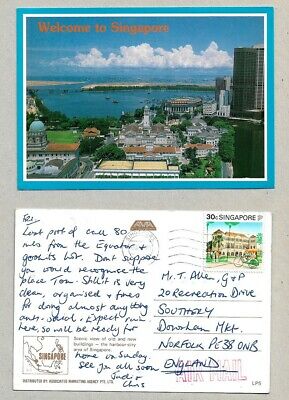 Welcome to Singapore
Fri
Last port of call 80
mls from the Equator &
good its hot. Dont suppose
you would recognise the
place Tom. Still it is very
clean, organised & fines
for doing almost anything
anti-social. Expect rain
here, so will be ready for
home on Sunday.
See you all soon
Chris
Scenic view of old and new
buildings — the harbour-city
area of Singapore.
SINGAPORE
DISTRIBUTED BY ASSOCIATED MARKETING AGENCY PTY. LTD.
30c SINGAPORE
Mr. T. Allen
20 Recreation Drive
SOUTHERY
Downham Mkt.
NORFOLK PE38 0NB
ENGLAND
AIR MAIL
LP5